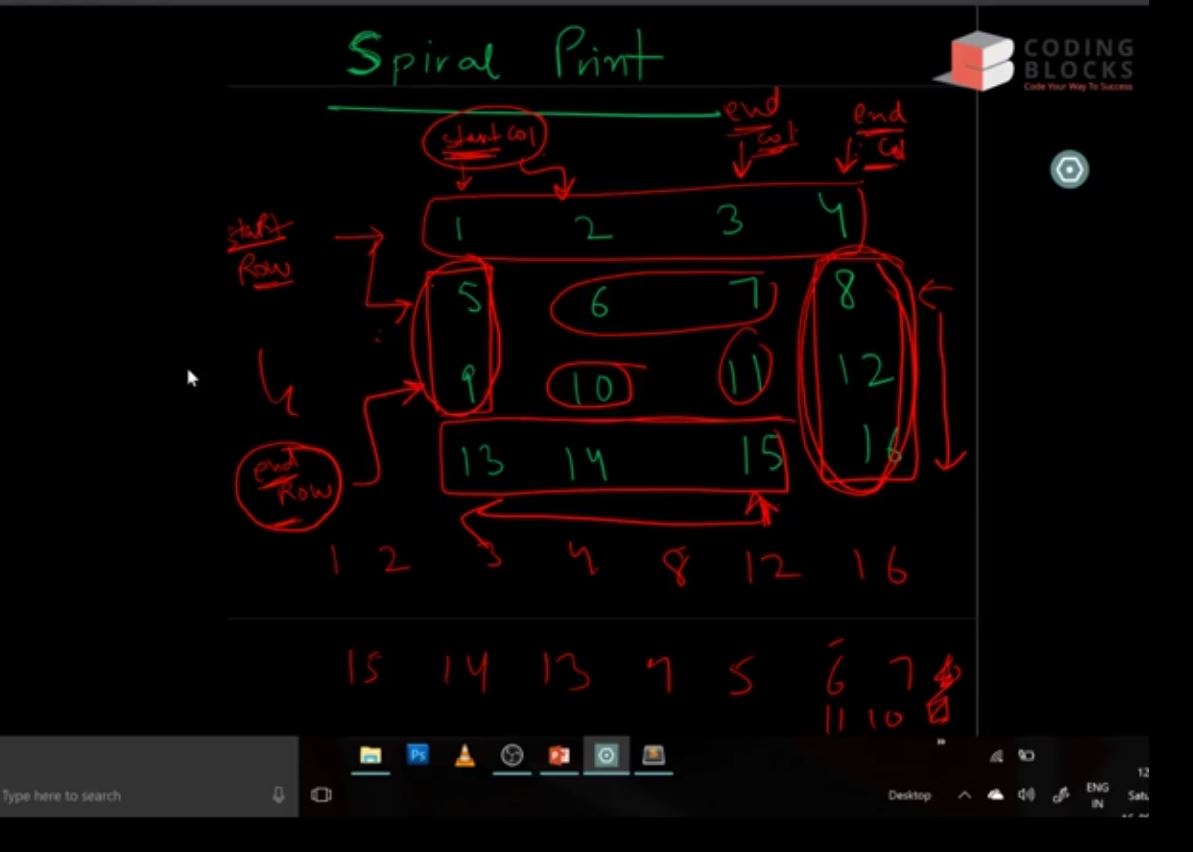 Spiral Print
CODING
BLOCKS
Code Your Way To Success
start col
end col
end col
start Row
1 2 3 4
5 6 7 8
9 10 11 12
13 14 15 16
end Row
1 2 3 4 8 12 16
15 14 13 9 5 6 7
11 10
Ps
Type here to search
Desktop
ENG
IN
12
Satu